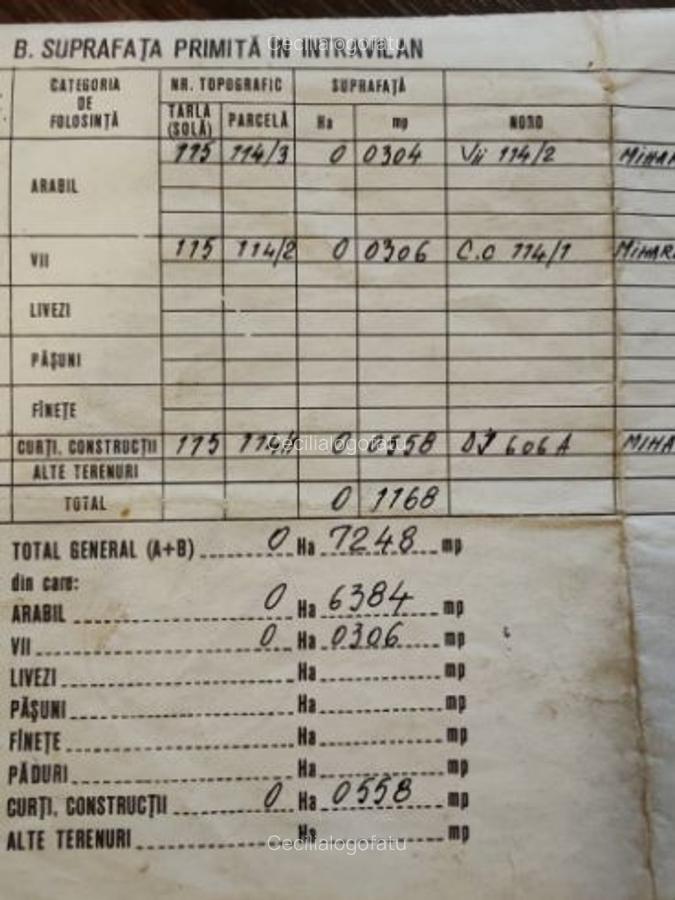 B. SUPRAFAȚA PRIMITĂ ÎN INTRAVILAN
Cecilialogofatu
CATEGORIA DE FOLOSINȚĂ NR. TOPOGRAFIC SUPRAFAȚĂ
TARLA (SOLĂ) PARCELĂ Ha mp NORD
ARABIL 115 114/3 0 0304 Vii 114/2
VII 115 114/2 0 0306 C.C 114/1
LIVEZI
PĂȘUNI
FÎNEȚE
CURȚI, CONSTRUCȚII 115 114/1 0 0558 DJ 606 A
Cecilialogofatu
ALTE TERENURI
TOTAL 0 1168
TOTAL GENERAL (A+B) 0 Ha 7248 mp
din care:
ARABIL 0 Ha 6384 mp
VII 0 Ha 0306 mp
LIVEZI Ha mp
PĂȘUNI Ha mp
FÎNEȚE Ha mp
PĂDURI Ha mp
CURȚI, CONSTRUCȚII 0 Ha 0558 mp
ALTE TERENURI Ha mp
Cecilialogofatu